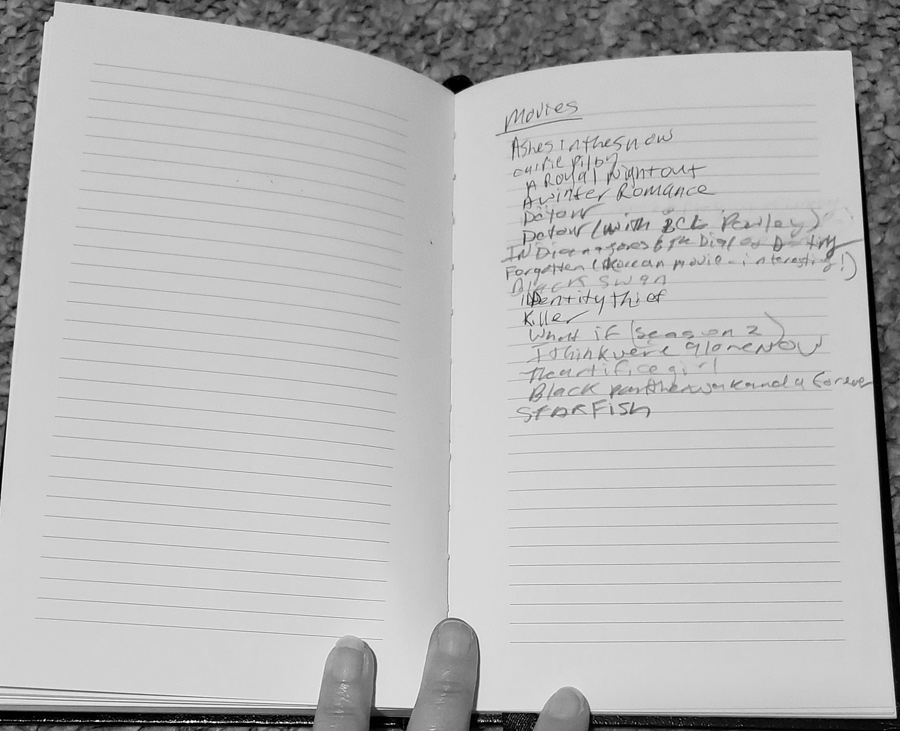 Movies
Ashes in the snow
carrie pilby
A Royal Night out
A winter Romance
Detour
Detour (with Powley)
INDiana Jones & the Dial of Destiny
Forgotten (Korean movie - interesting!)
Black swan
IDentity thief
Killer
What if (season 2)
I think we're alone NOW
The artifice girl
Black panther wakanda forever
STARFISh